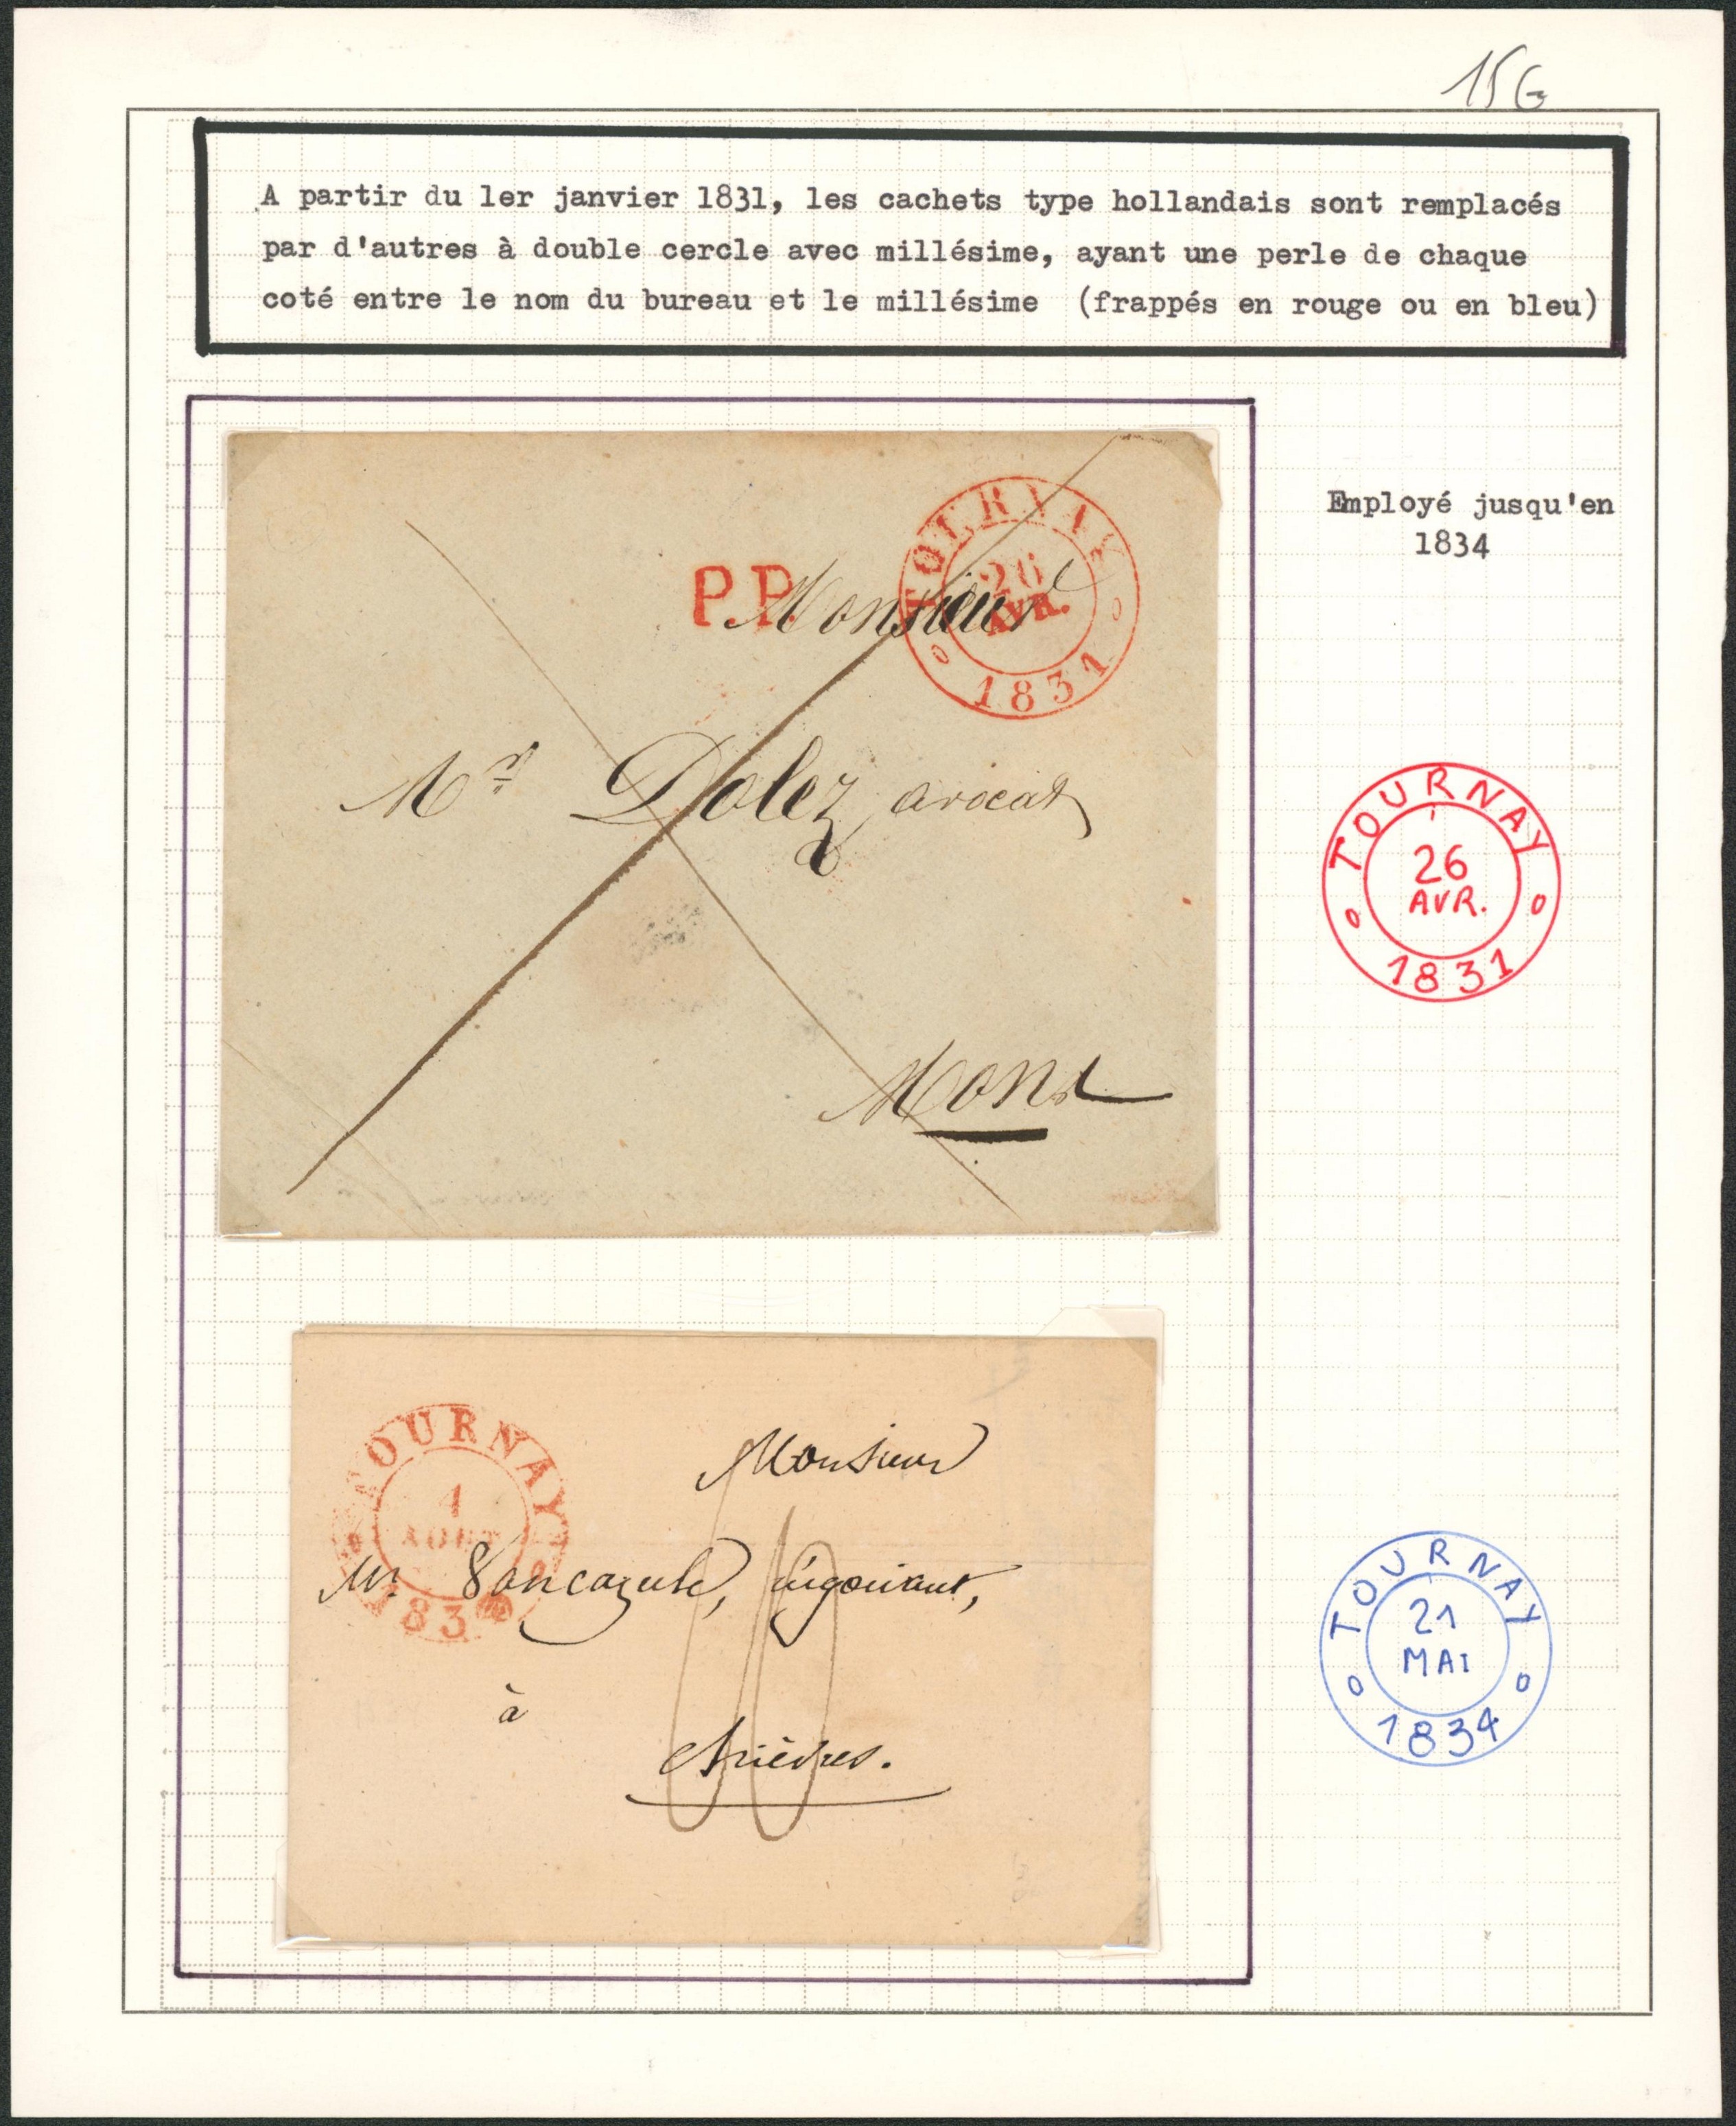 15G
A partir du 1er janvier 1831, les cachets type hollandais sont remplacés
par d'autres à double cercle avec millésime, ayant une perle de chaque
coté entre le nom du bureau et le millésime (frappés en rouge ou en bleu)
Employé jusqu'en
1834
TOURNAY
26
AVR.
1831
P.P.
Monsieur
Mr Dolez, avocat
Mons
TOURNAY
26
AVR.
1831
TOURNAY
1
AOUT
183
Monsieur
Mr négociant,
à
Chièvres.
TOURNAY
21
MAI
1834